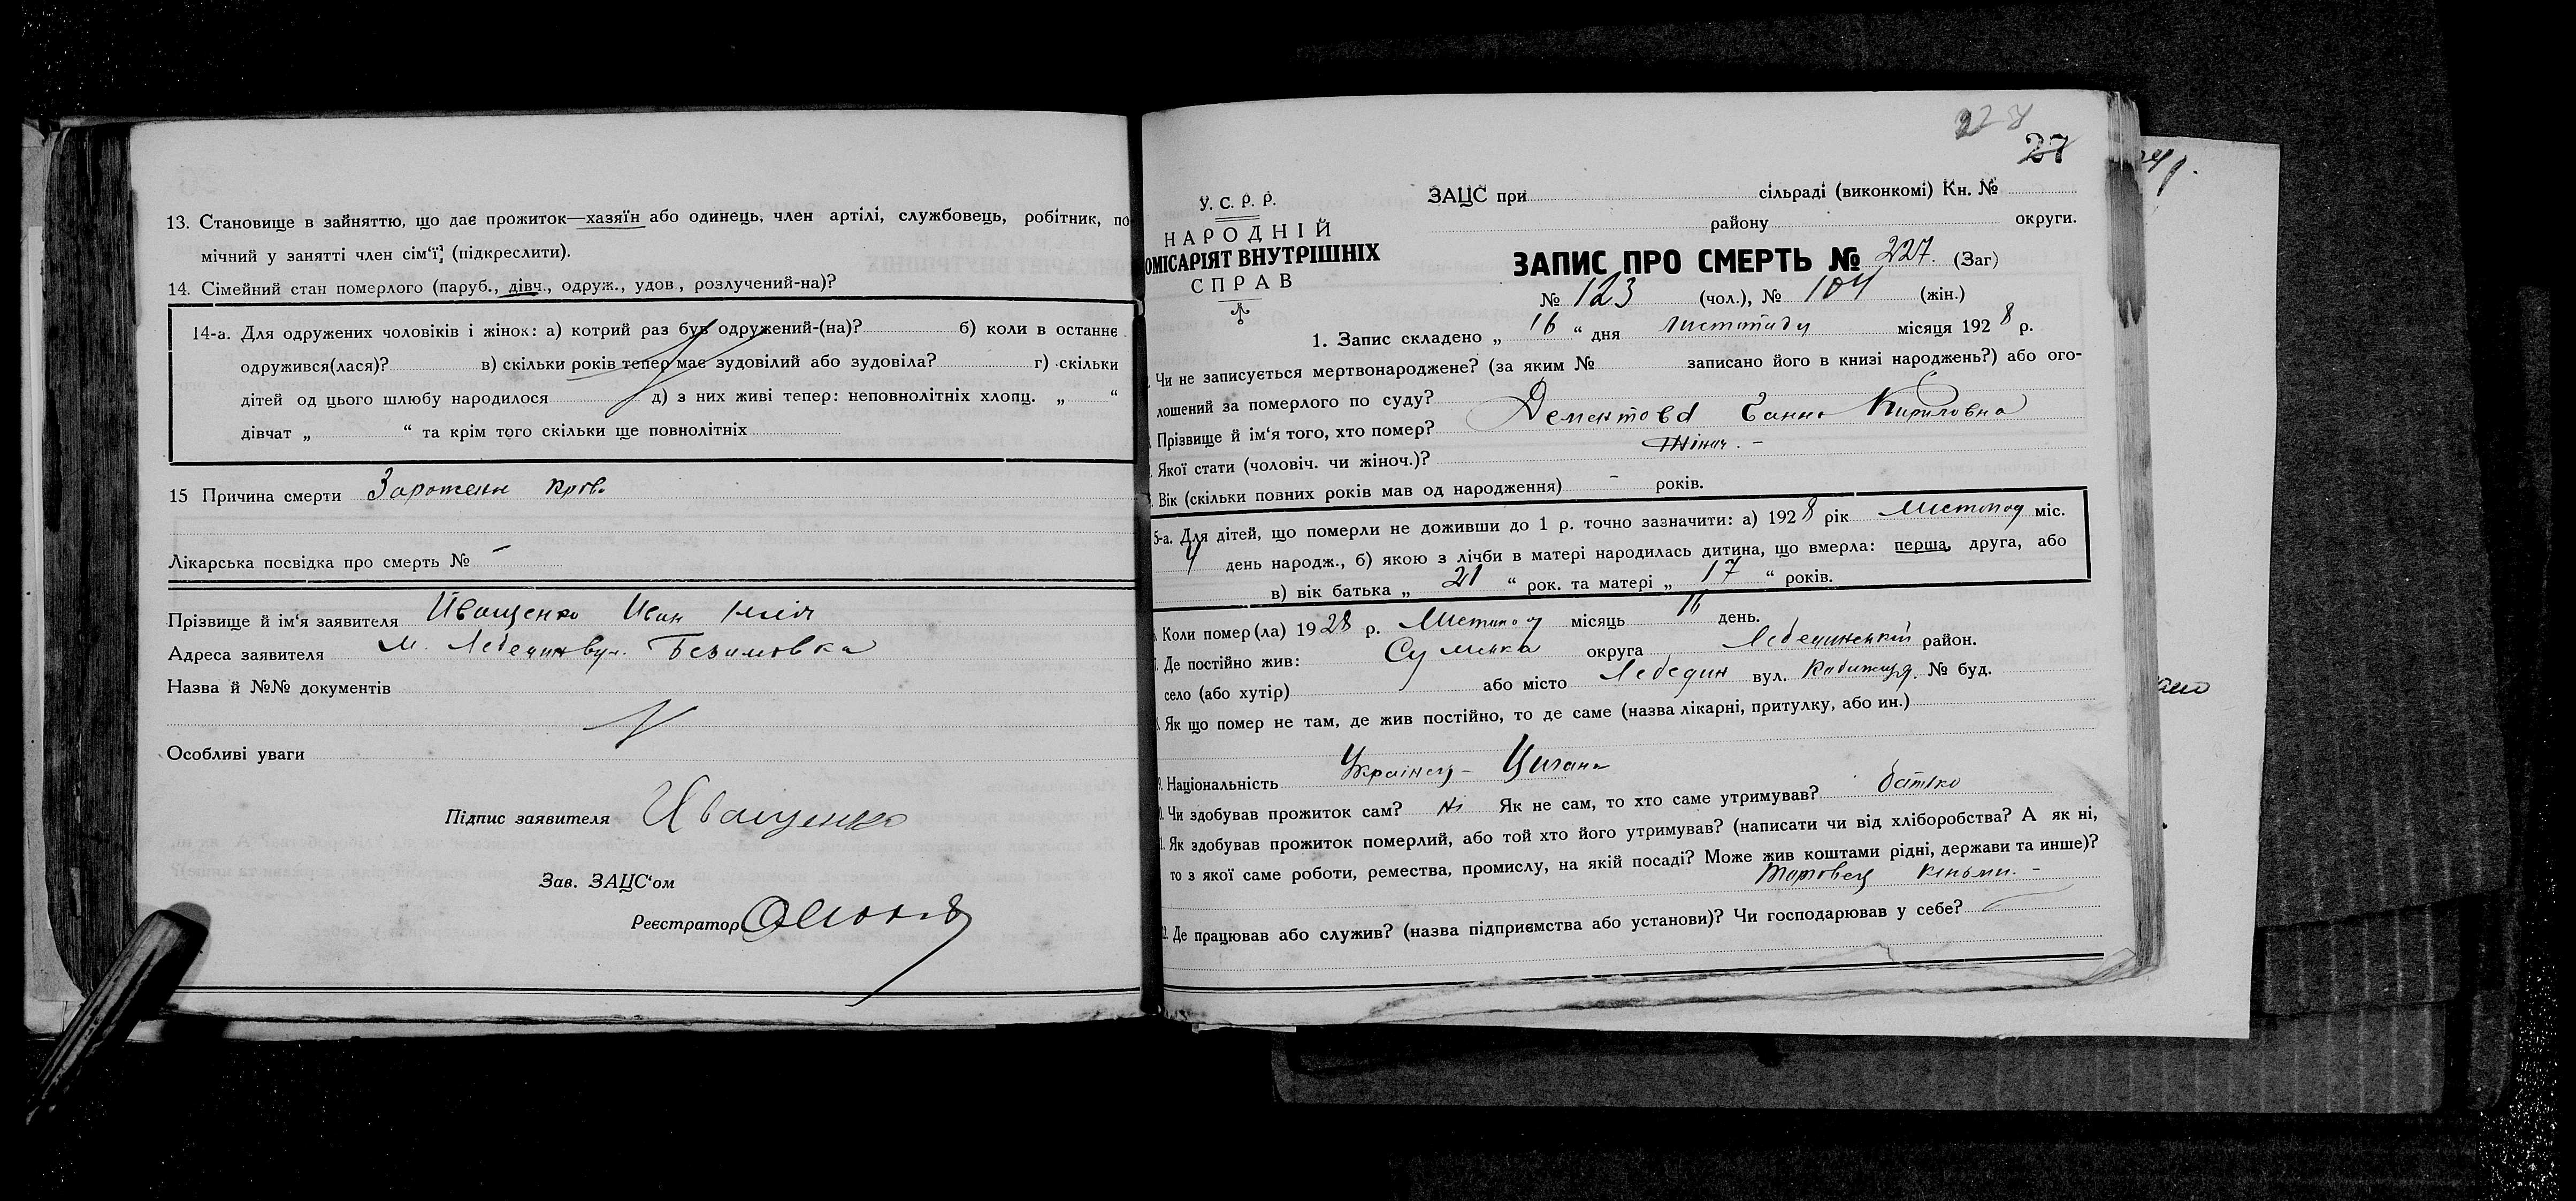 13. Становище в зайняттю, що дає прожиток—хазяїн або одинець, член артілі, службовець, робітник, по
мічний у занятті член сім'ї; (підкреслити).
14. Сімейний стан померлого (паруб., дівч., одруж., удов., розлучений-на)?
14-а. Для одружених чоловіків і жінок: а) котрий раз був одружений-(на)? б) коли в останнє
одружився(лася)? в) скільки років тепер має зудовілий або зудовіла? г) скільки
дітей од цього шлюбу народилося д) з них живі тепер: неповнолітніх хлопц. „ “
дівчат „ “ та крім того скільки ще повнолітніх
15 Причина смерти Зароження крові
Лікарська посвідка про смерть № —
Прізвище й ім'я заявителя Иващенко Иван
Адреса заявителя м. Лебедин вул. Безимовка
Назва й №№ документів
Особливі уваги
Підпис заявителя Иващенко
Зав. ЗАЦС'ом
Реєстратор
228
27
У. С. Р. Р.
НАРОДНІЙ
ОМІСАРІЯТ ВНУТРІШНІХ
СПРАВ
ЗАЦС при сільраді (виконкомі) Кн. №
району округи.
ЗАПИС ПРО СМЕРТЬ № 227. (Заг)
№ 123 (чол.), № 104 (жін.)
1. Запис складено „ 16 “ дня листопаду місяця 1928 р.
Чи не записується мертвонароджене? (за яким № записано його в книзі народжень?) або ого-
лошений за померлого по суду?
Прізвище й ім'я того, хто помер? Дементова Ганна Кириловна
Якої стати (чоловіч. чи жіноч.)? Жіноч. —
Вік (скільки повних років мав од народження) — років.
5-а. Для дітей, що померли не доживши до 1 р. точно зазначити: а) 1928 рік Листопад міс.
4 день народж., б) якою з лічби в матері народилась дитина, що вмерла: перша, друга, або
в) вік батька „ 21 “ рок. та матері „ 17 “ років.
Коли помер(ла) 1928 р. Листопад місяць 16 день.
Де постійно жив: Сумська округа Лебединський район.
село (або хутір) або місто Лебедин вул. № буд.
Як що помер не там, де жив постійно, то де саме (назва лікарні, притулку, або ин.)
9. Національність Українець — Цигани
Чи здобував прожиток сам? Ні Як не сам, то хто саме утримував? батько
Як здобував прожиток померлий, або той хто його утримував? (написати чи від хліборобства? А як ні,
то з якої саме роботи, ремества, промислу, на якій посаді? Може жив коштами рідні, держави та инше)?
Торговець кіньми. —
Де працював або служив? (назва підприємства або установи)? Чи господарював у себе?